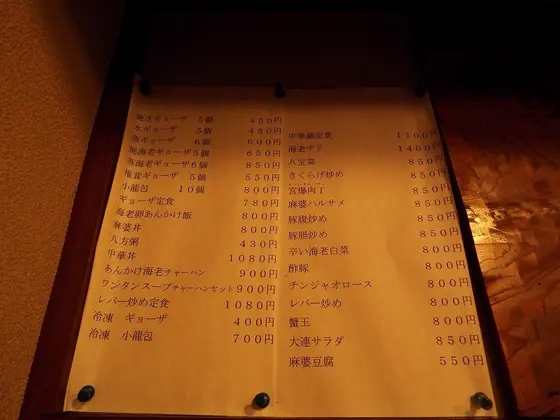 焼きギョーザ 5個 450円
水ギョーザ 5個 450円
蒸ギョーザ 6個 600円
焼海老ギョーザ5個 650円
蒸海老ギョーザ6個 850円
椎茸ギョーザ 5個 550円
小龍包 10個 800円
ギョーザ定食 780円
海老卵あんかけ飯 800円
麻婆丼 800円
八方粥 430円
中華丼 1080円
あんかけ海老チャーハン 900円
ワンタンスープチャーハンセット 900円
レバー炒め定食 1080円
冷凍 ギョーザ 400円
冷凍 小龍包 700円
中華鍋定食 1100円
海老チリ 1400円
八宝菜 850円
きくらげ炒め 850円
宮爆肉丁 850円
麻婆ハルサメ 850円
豚腹炒め 850円
豚腸炒め 850円
辛い海老白菜 800円
酢豚 800円
チンジャオロース 800円
レバー炒め 800円
蟹玉 800円
大連サラダ 850円
麻婆豆腐 550円